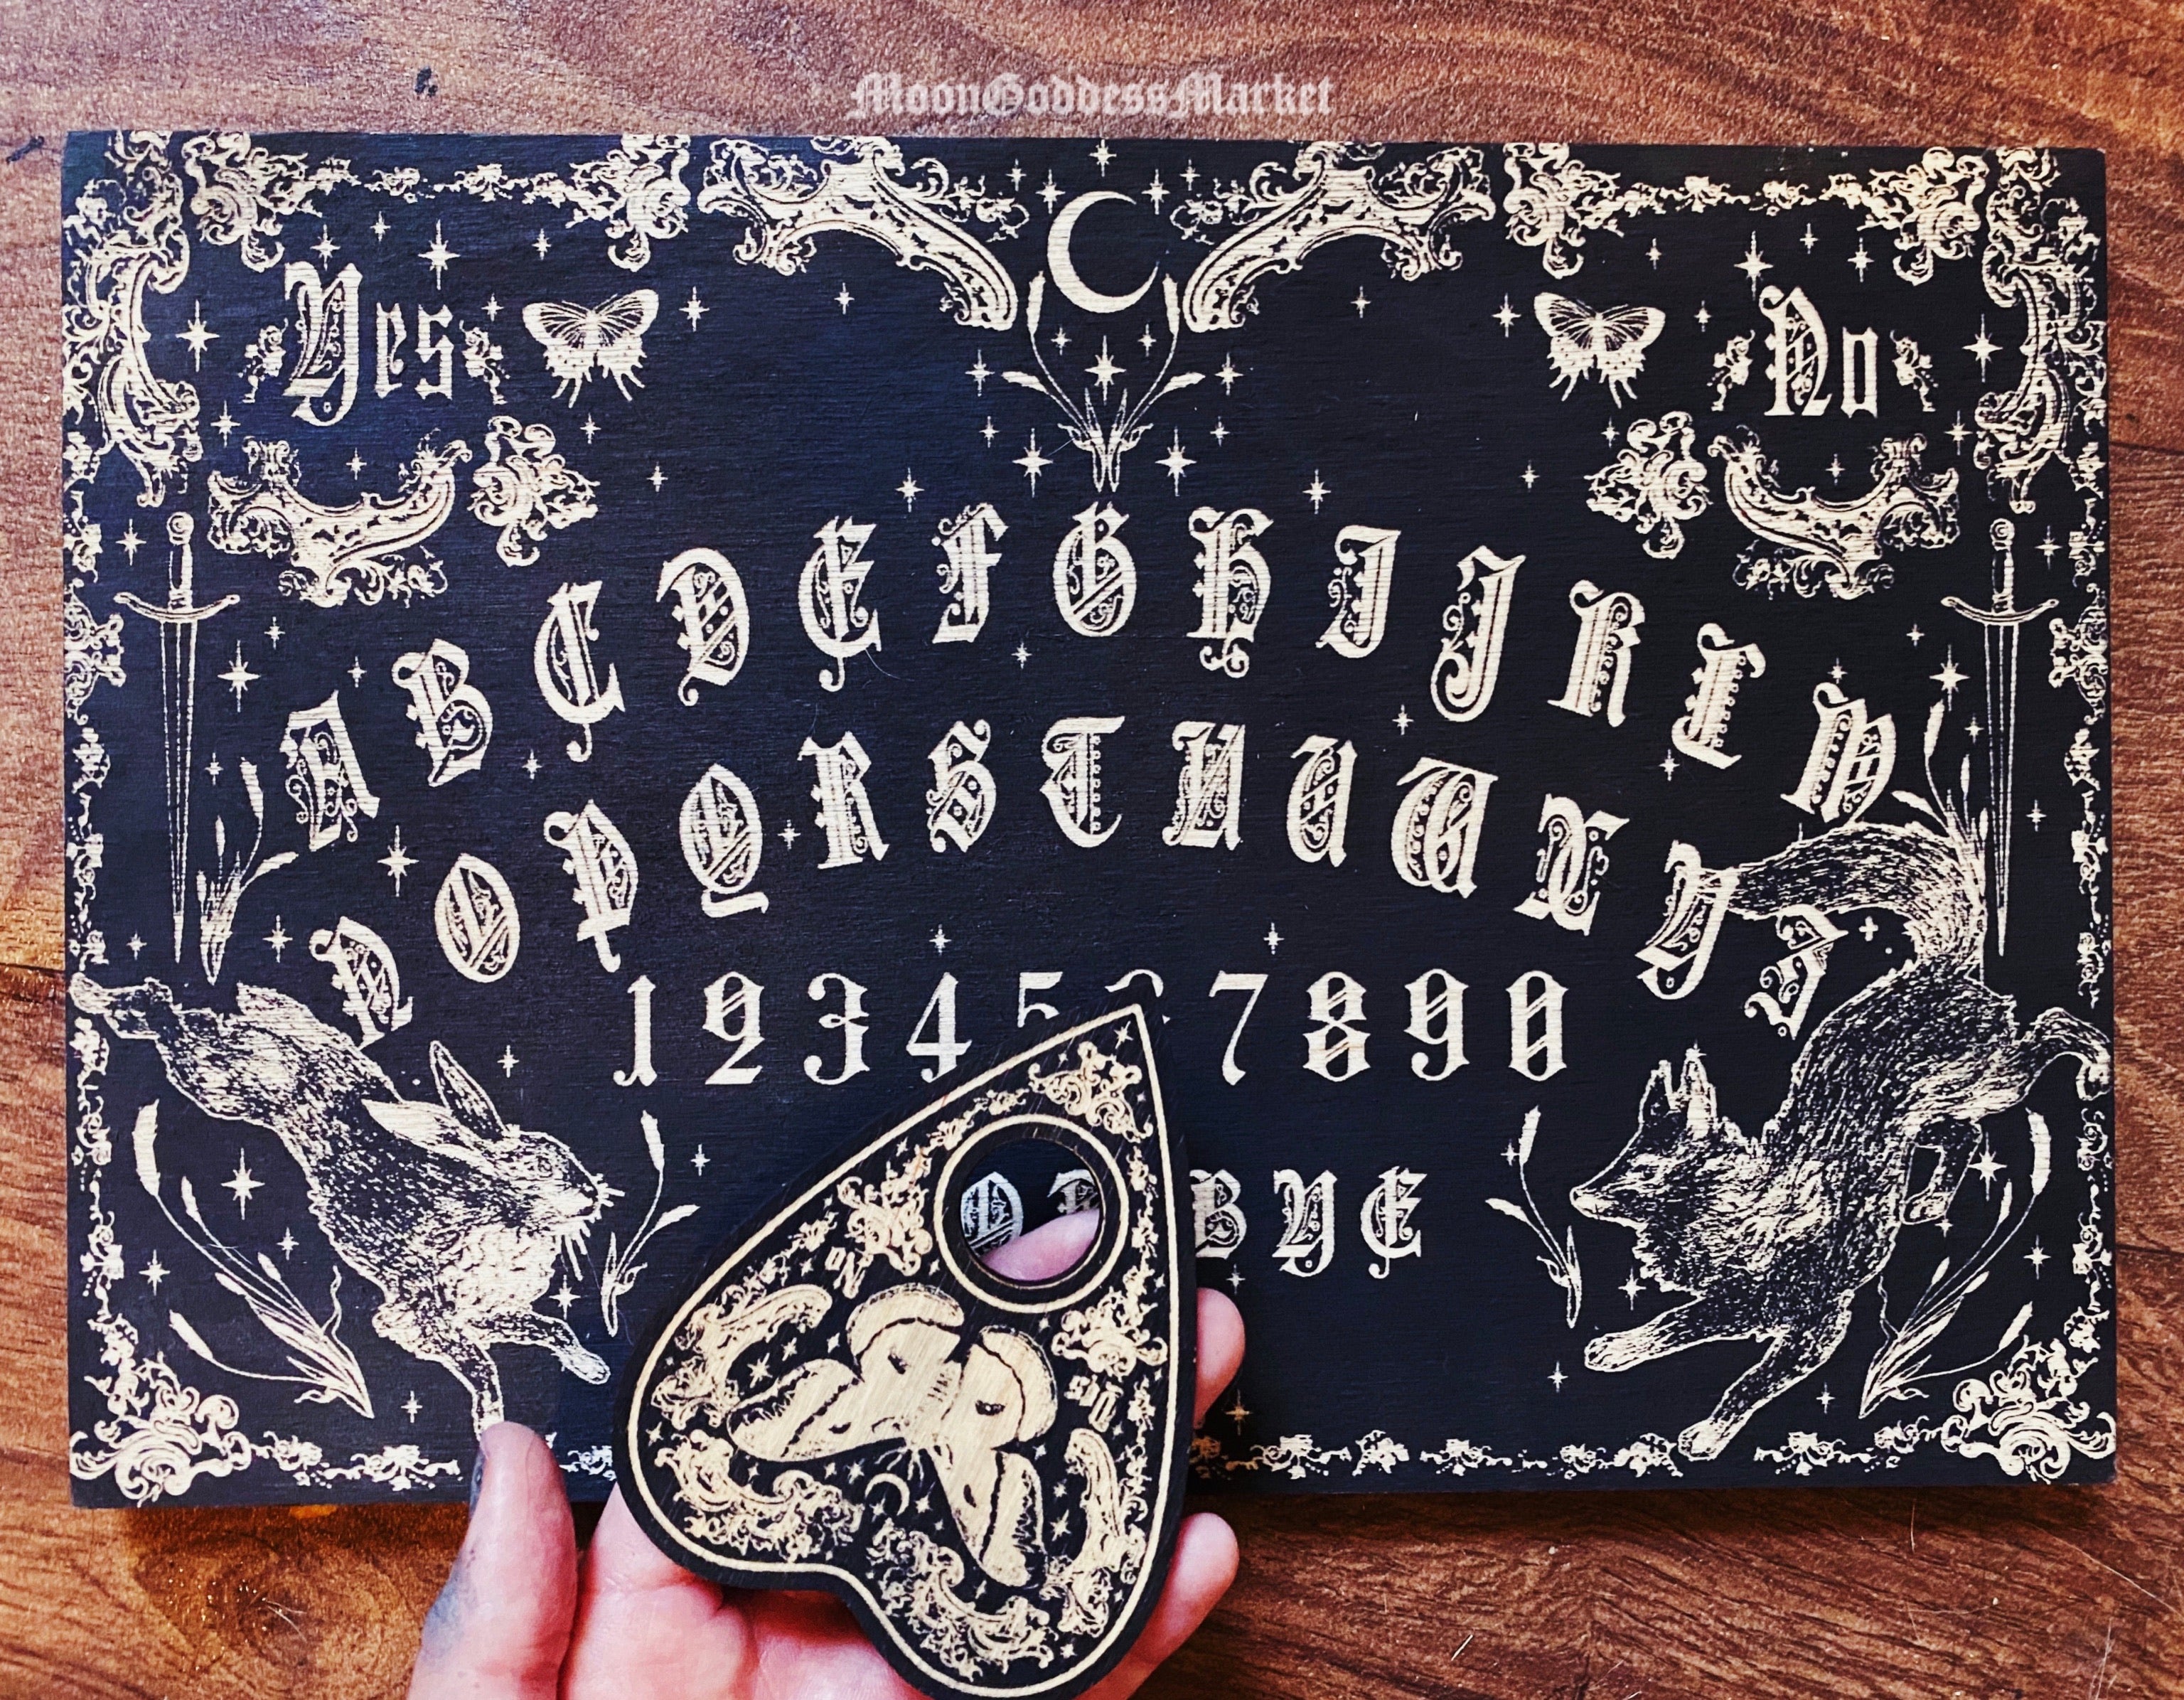 MoonGoddessMarket
Yes No
A B C D E F G H I J K L M
N O P Q R S T U V W X Y Z
1 2 3 4 5 6 7 8 9 0
O D B Y E